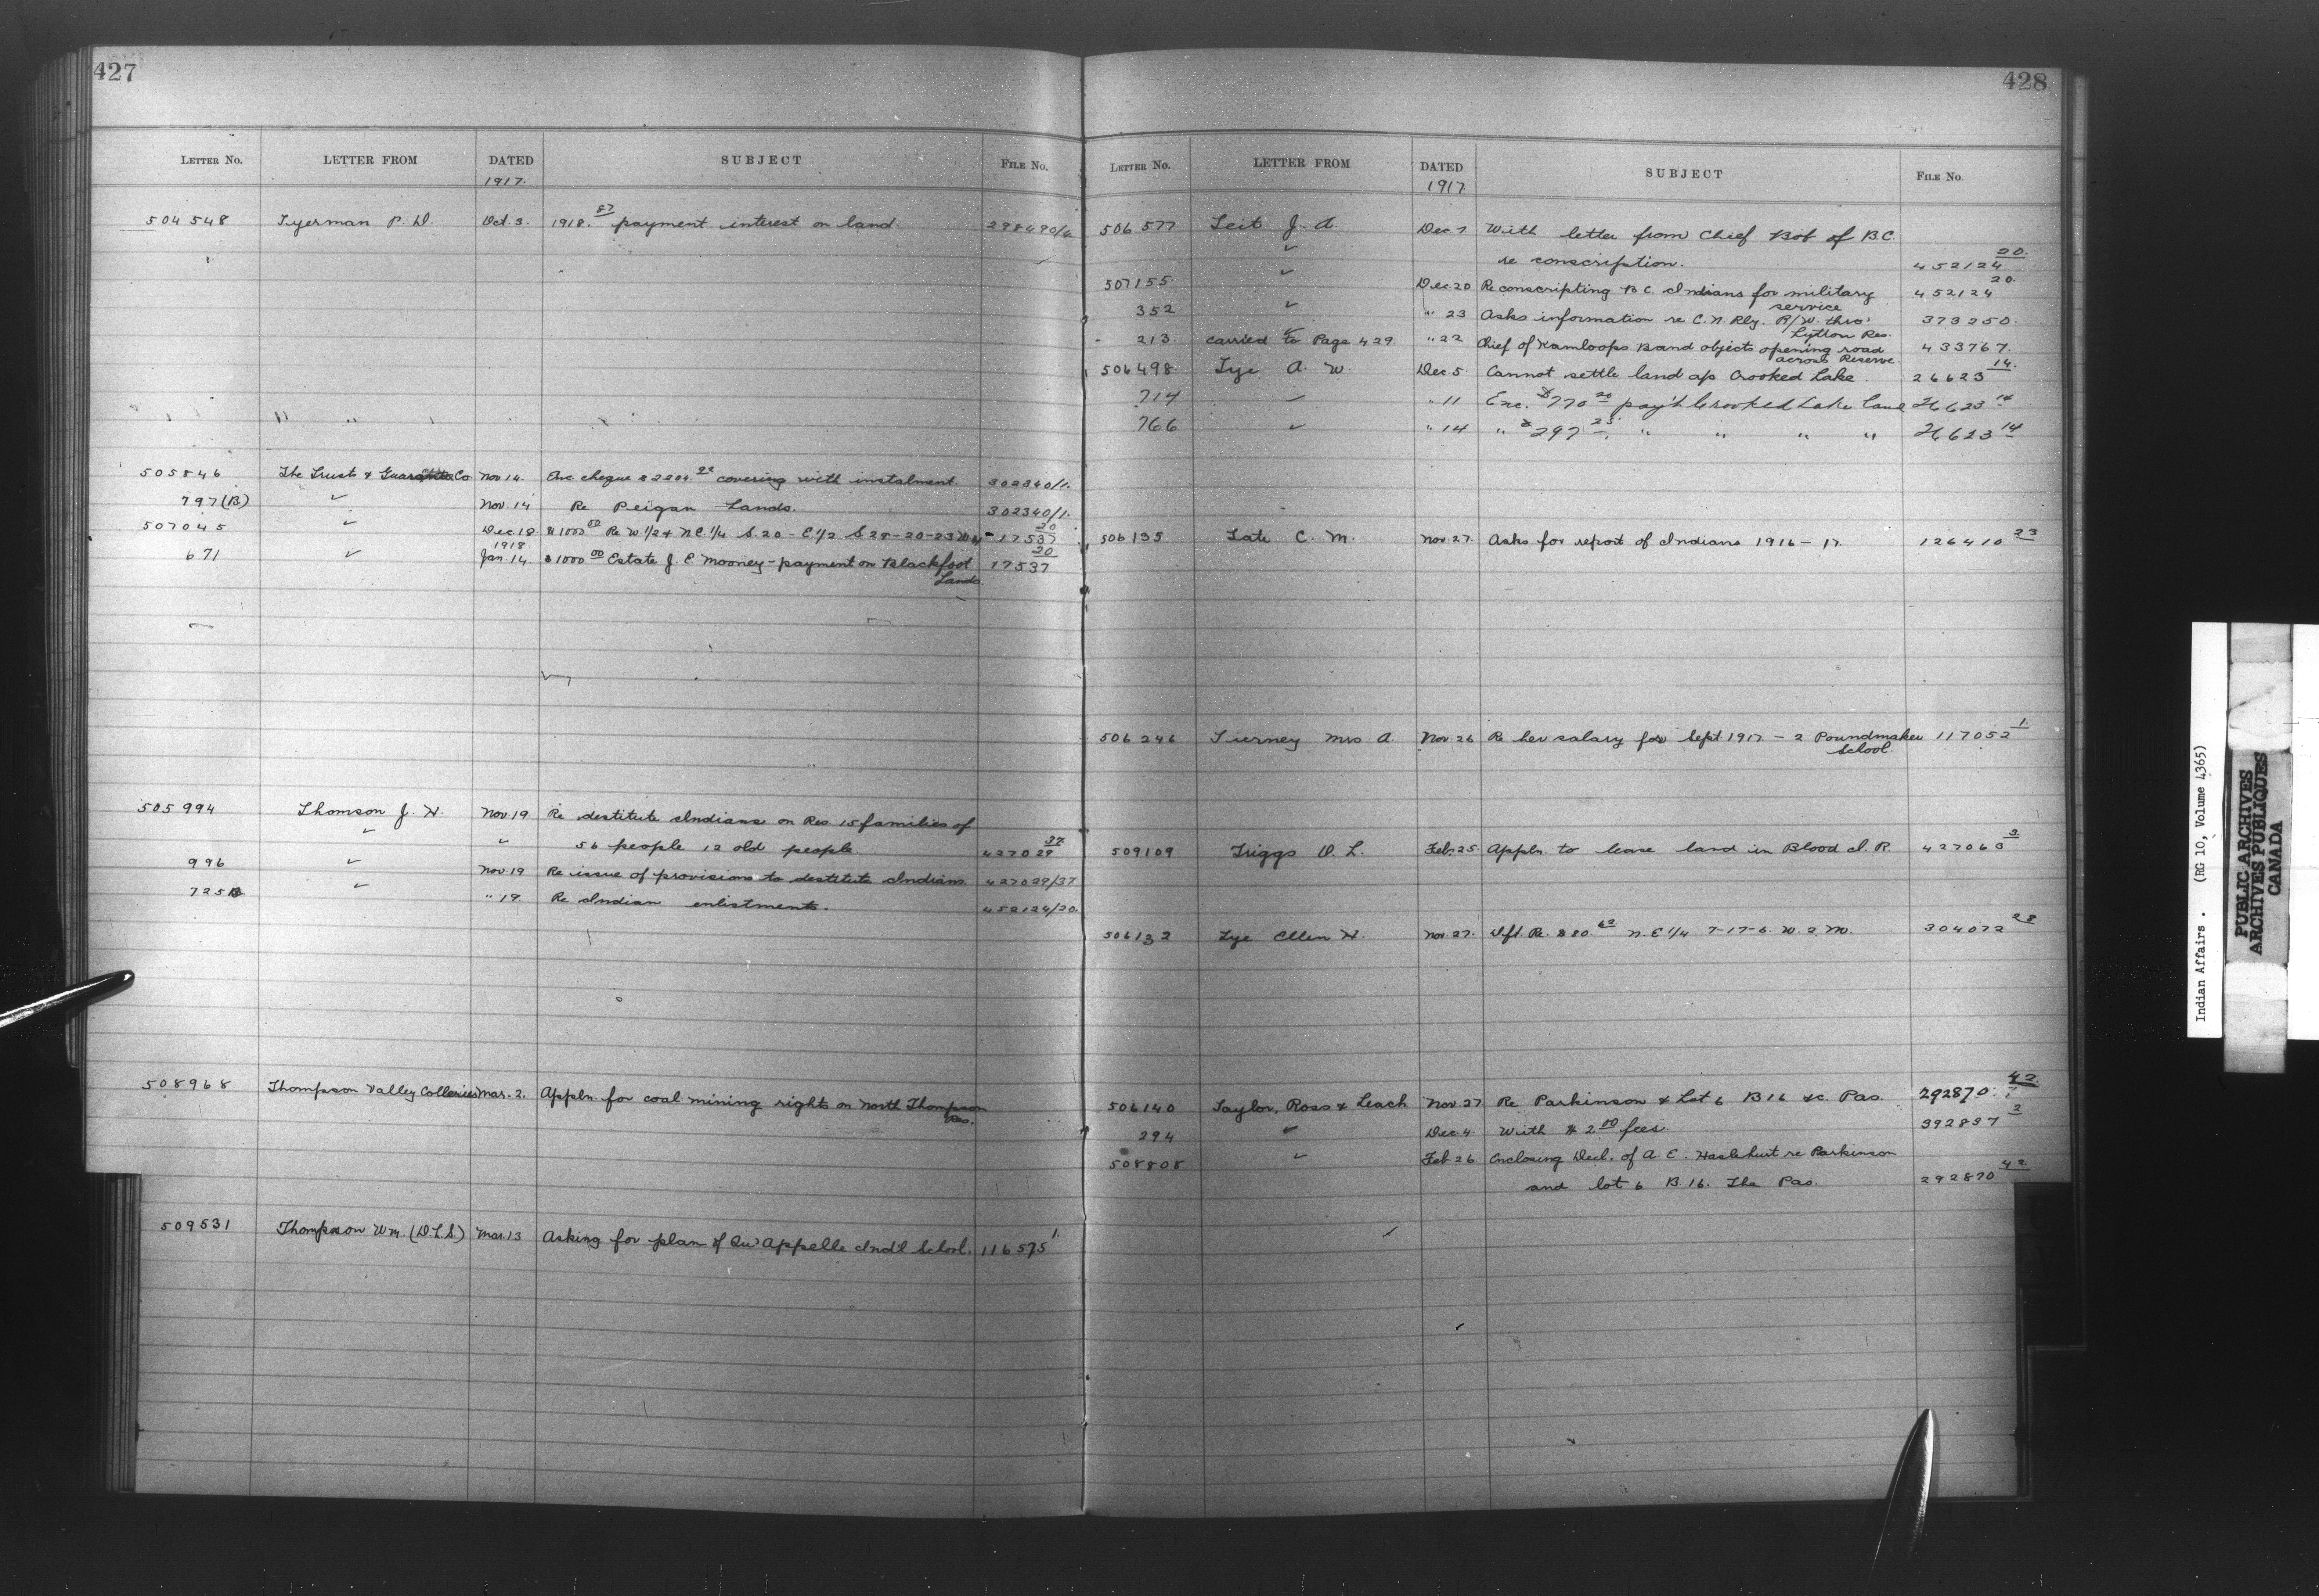 427
LETTER No. LETTER FROM DATED SUBJECT FILE No.
1917.
504548 Tyerman P. D. Oct. 3. 1918.87 payment interest on land. 298490/4
" "
505846 The Trust & Guarantee Co Nov 14. Enc. cheque covering with instalment. 302340/1.
797(B) ✓ Nov. 14 Re Peigan Lands. 302340/1.
507045 ✓ Dec 18 $1000 00 Re W. 1/2 + N.E. 1/4 S. 20 - E 1/2 S 28-20-23 W 4 17537 20
1918
671 ✓ Jan 14 $1000 00 Estate J. E. Mooney - payment on Blackfoot 17537 20
Lands.
505994 Thomson J. H. Nov 19 Re destitute Indians on Res 15 families of
✓ ✓ 56 people 12 old people 427029 37
996 ✓ Nov. 19 Re issue of provisions to destitute Indians 427029/37
725B ✓ " 19. Re Indian enlistments. 452124/20.
508968 Thompson Valley Collieries Mar. 2. Appln. for coal mining rights on North Thompson
Res.
509531 Thompson Wm. (D.L.S.) Mar. 13 Asking for plan of Qu'Appelle Ind'l School. 116575 1.
428
LETTER No. LETTER FROM DATED SUBJECT FILE No.
1917.
506577 Teit J. A. Dec 7 With letter from Chief Bob of B.C.
✓ re conscription. 452124 20.
507155 ✓ Dec. 20 Re conscripting B.C. Indians for military 452124 20.
service
352 ✓ " 23 Asks information re C. N. Rly. R/W. thro' 373250.
Lytton Res.
213. carried to Page 429. " 22 Chief of Kamloops Band objects opening road 433767.
across Reserve
506498 Tye A. W. Dec 5. Cannot settle land a/c Crooked Lake. 26623 14.
714 ✓ " 11 Enc. $770 20 pay't Crooked Lake land 26623 14
766 ✓ " 14 " $297 25. " " " " 26623 14
506135 Tate C. M. Nov. 27. Asks for report of Indians 1916-17. 126410 23
506246 Tierney Mrs A. Nov. 26 Re her salary for Sept 1917 - 2 Poundmaker 117052 1.
School.
509109 Triggs O. L. Feb. 25 Appln. to lease land in Blood I. R. 427063 3
506132 Tye Ellen H. Nov. 27. Dft. Re. $80. 62 N. E 1/4 7-17-6. W. 2. M. 304072 28
506140 Taylor, Ross & Leach Nov 27 Re Parkinson & Lot 6 B 16 &c. Pas. 292870 42.
294 ✓ Dec 4. With $2 00 fees. 392837 2
508808 ✓ Feb 26. Enclosing Decl. of A. E. Haslehurt re Parkinson
and lot 6 B. 16. The Pas. 292870 42.
Indian Affairs. (RG 10, Volume 4365)
PUBLIC ARCHIVES
ARCHIVES PUBLIQUES
CANADA